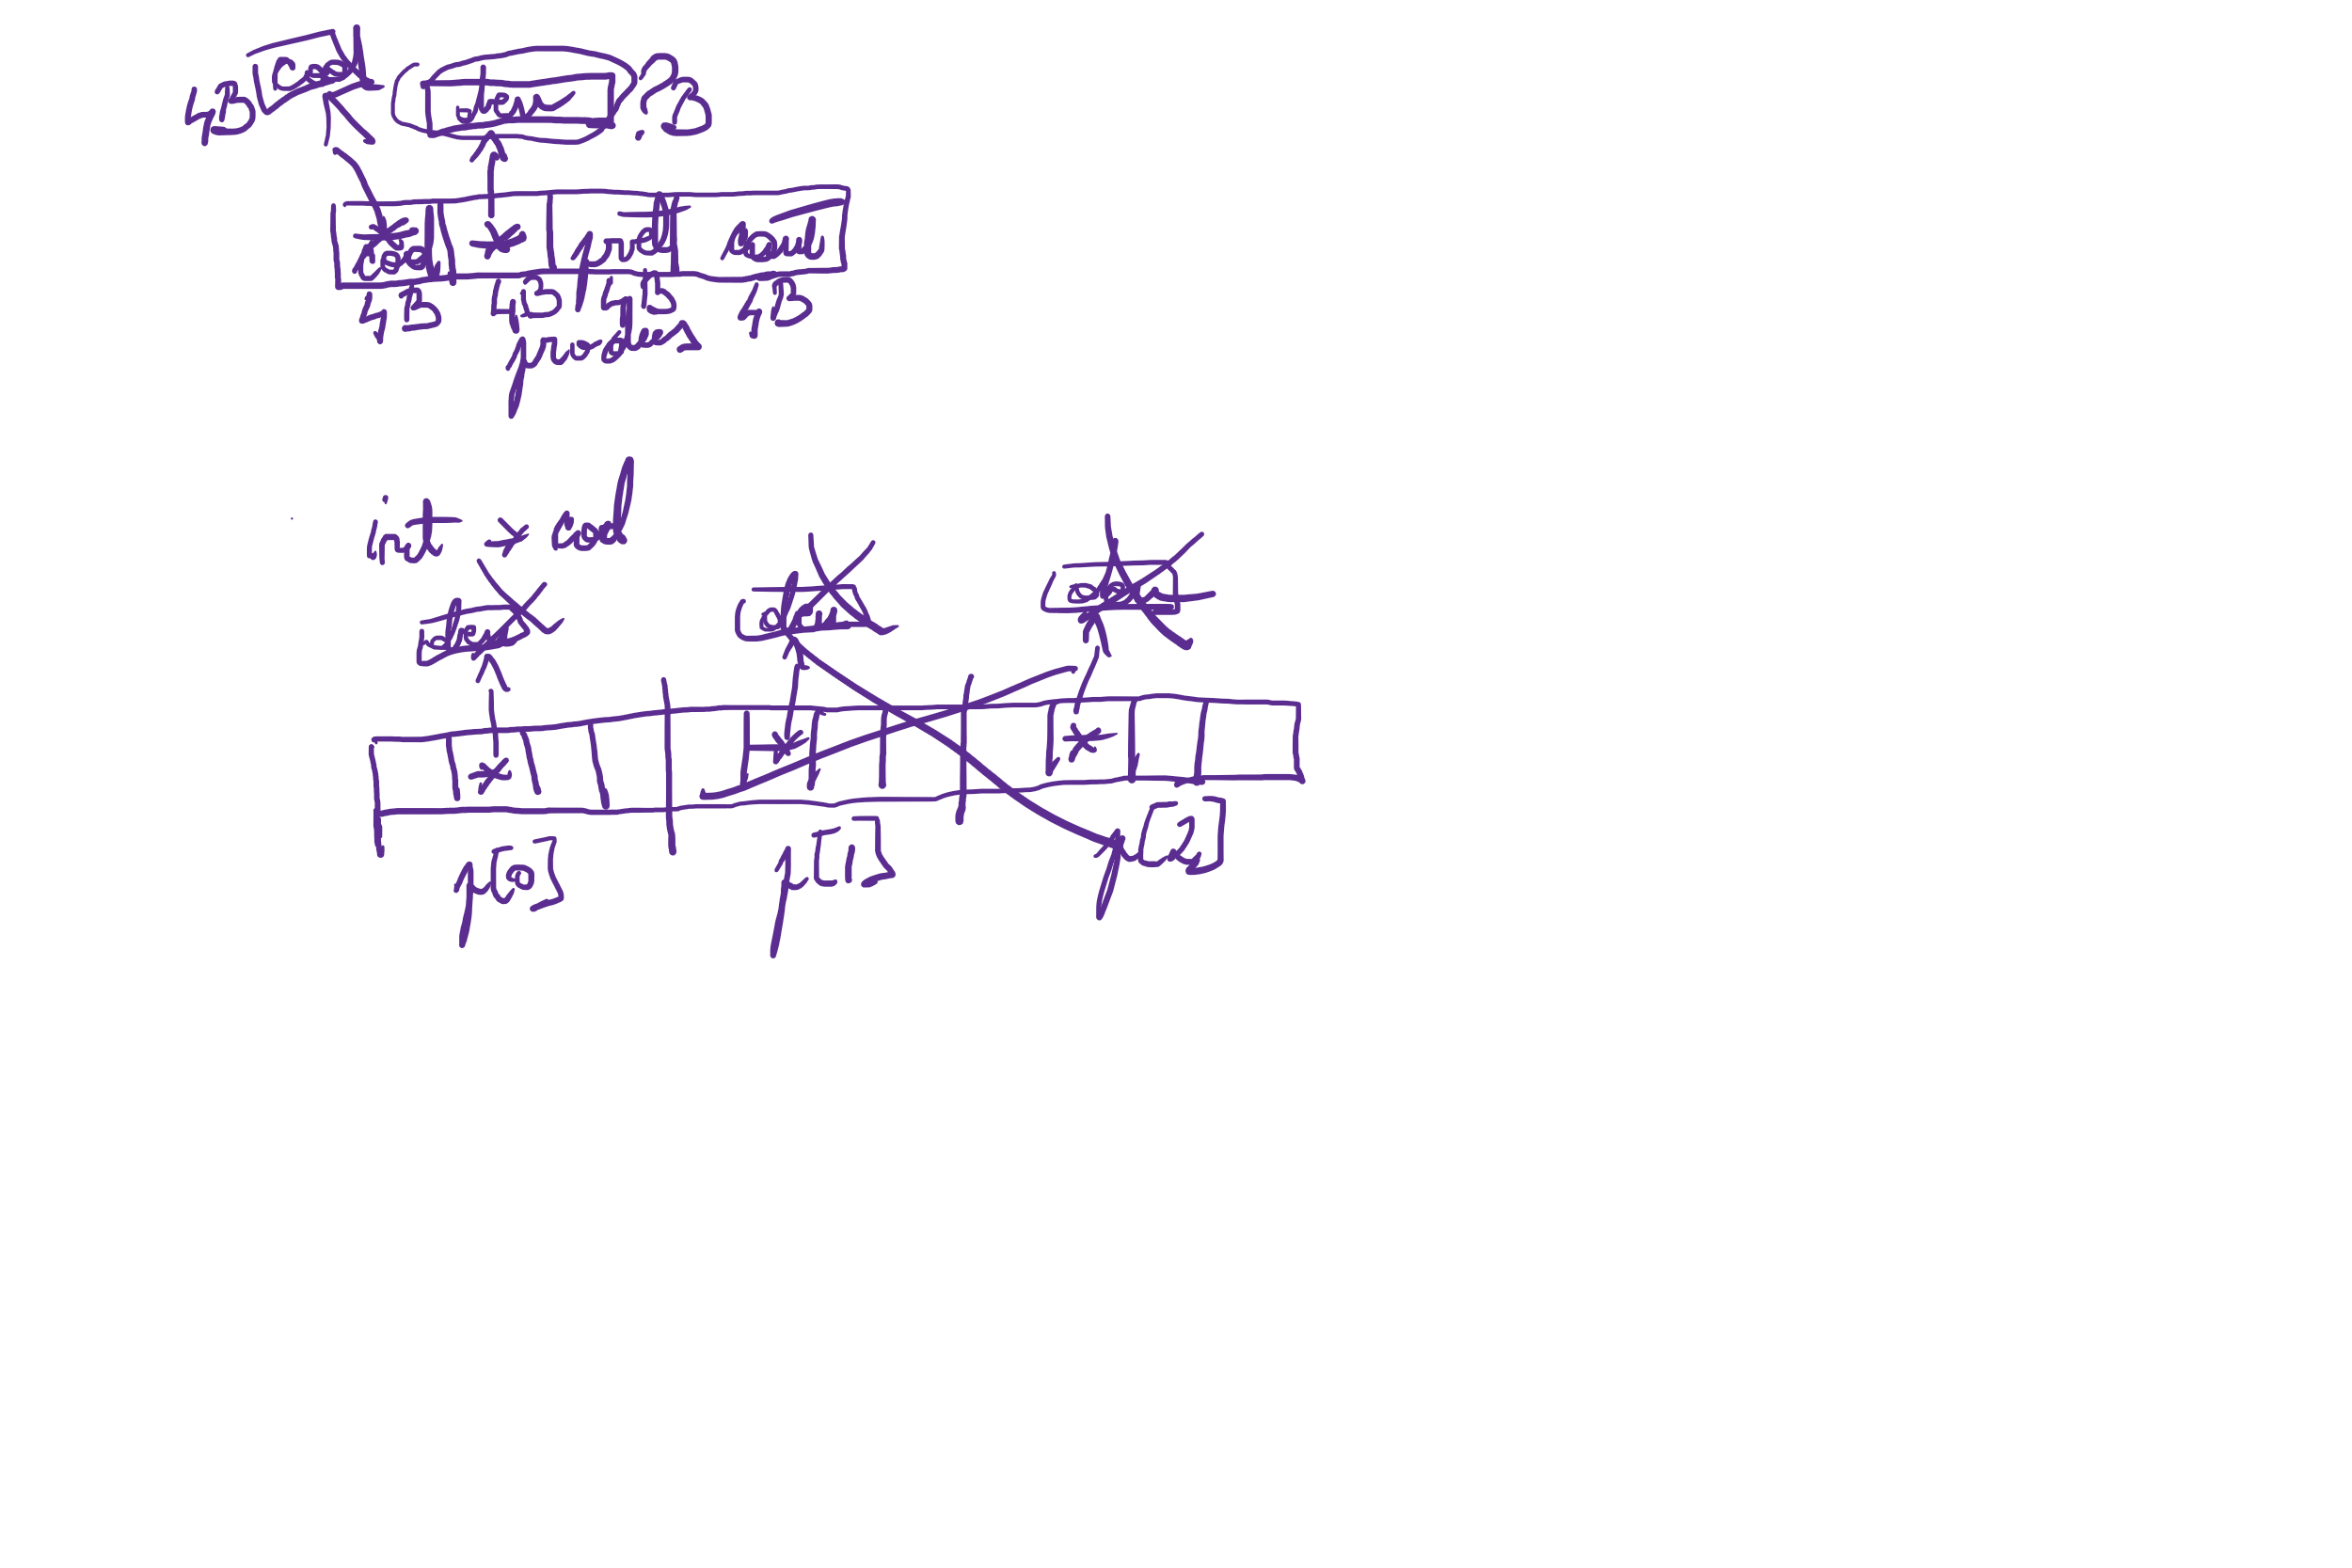 4B cod den ?B
* cod * pret cod
4B 4B 4B 4B
produs
int * cod
den den den
* * *
p[0] p[1] p[2]